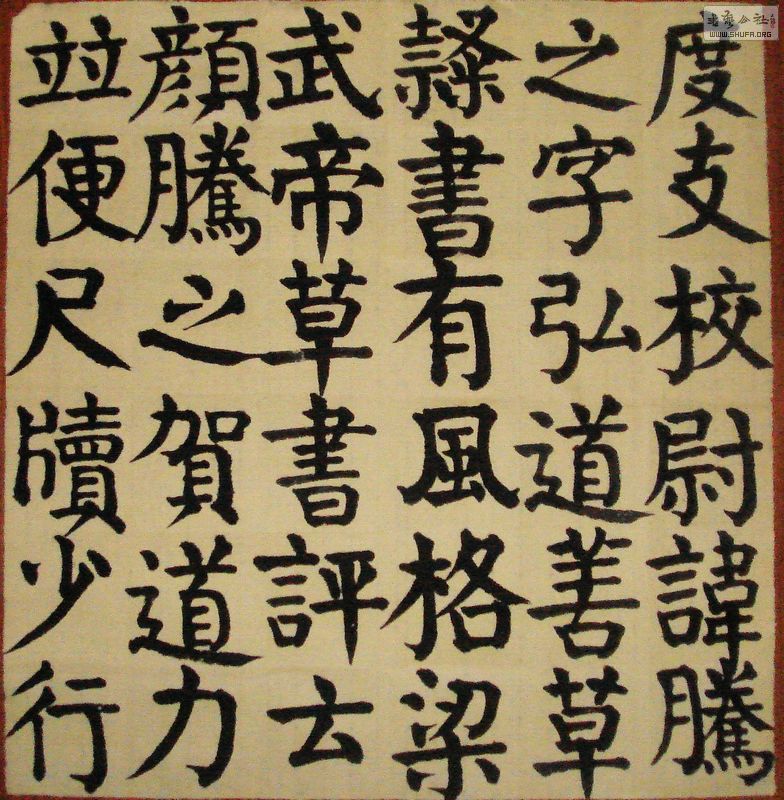 度支校尉諱騰
之字弘道善草
隷書有風格梁
武帝草書評云
顔騰之賀道力
並便尺牘少行
WWW.SHUFA.ORG